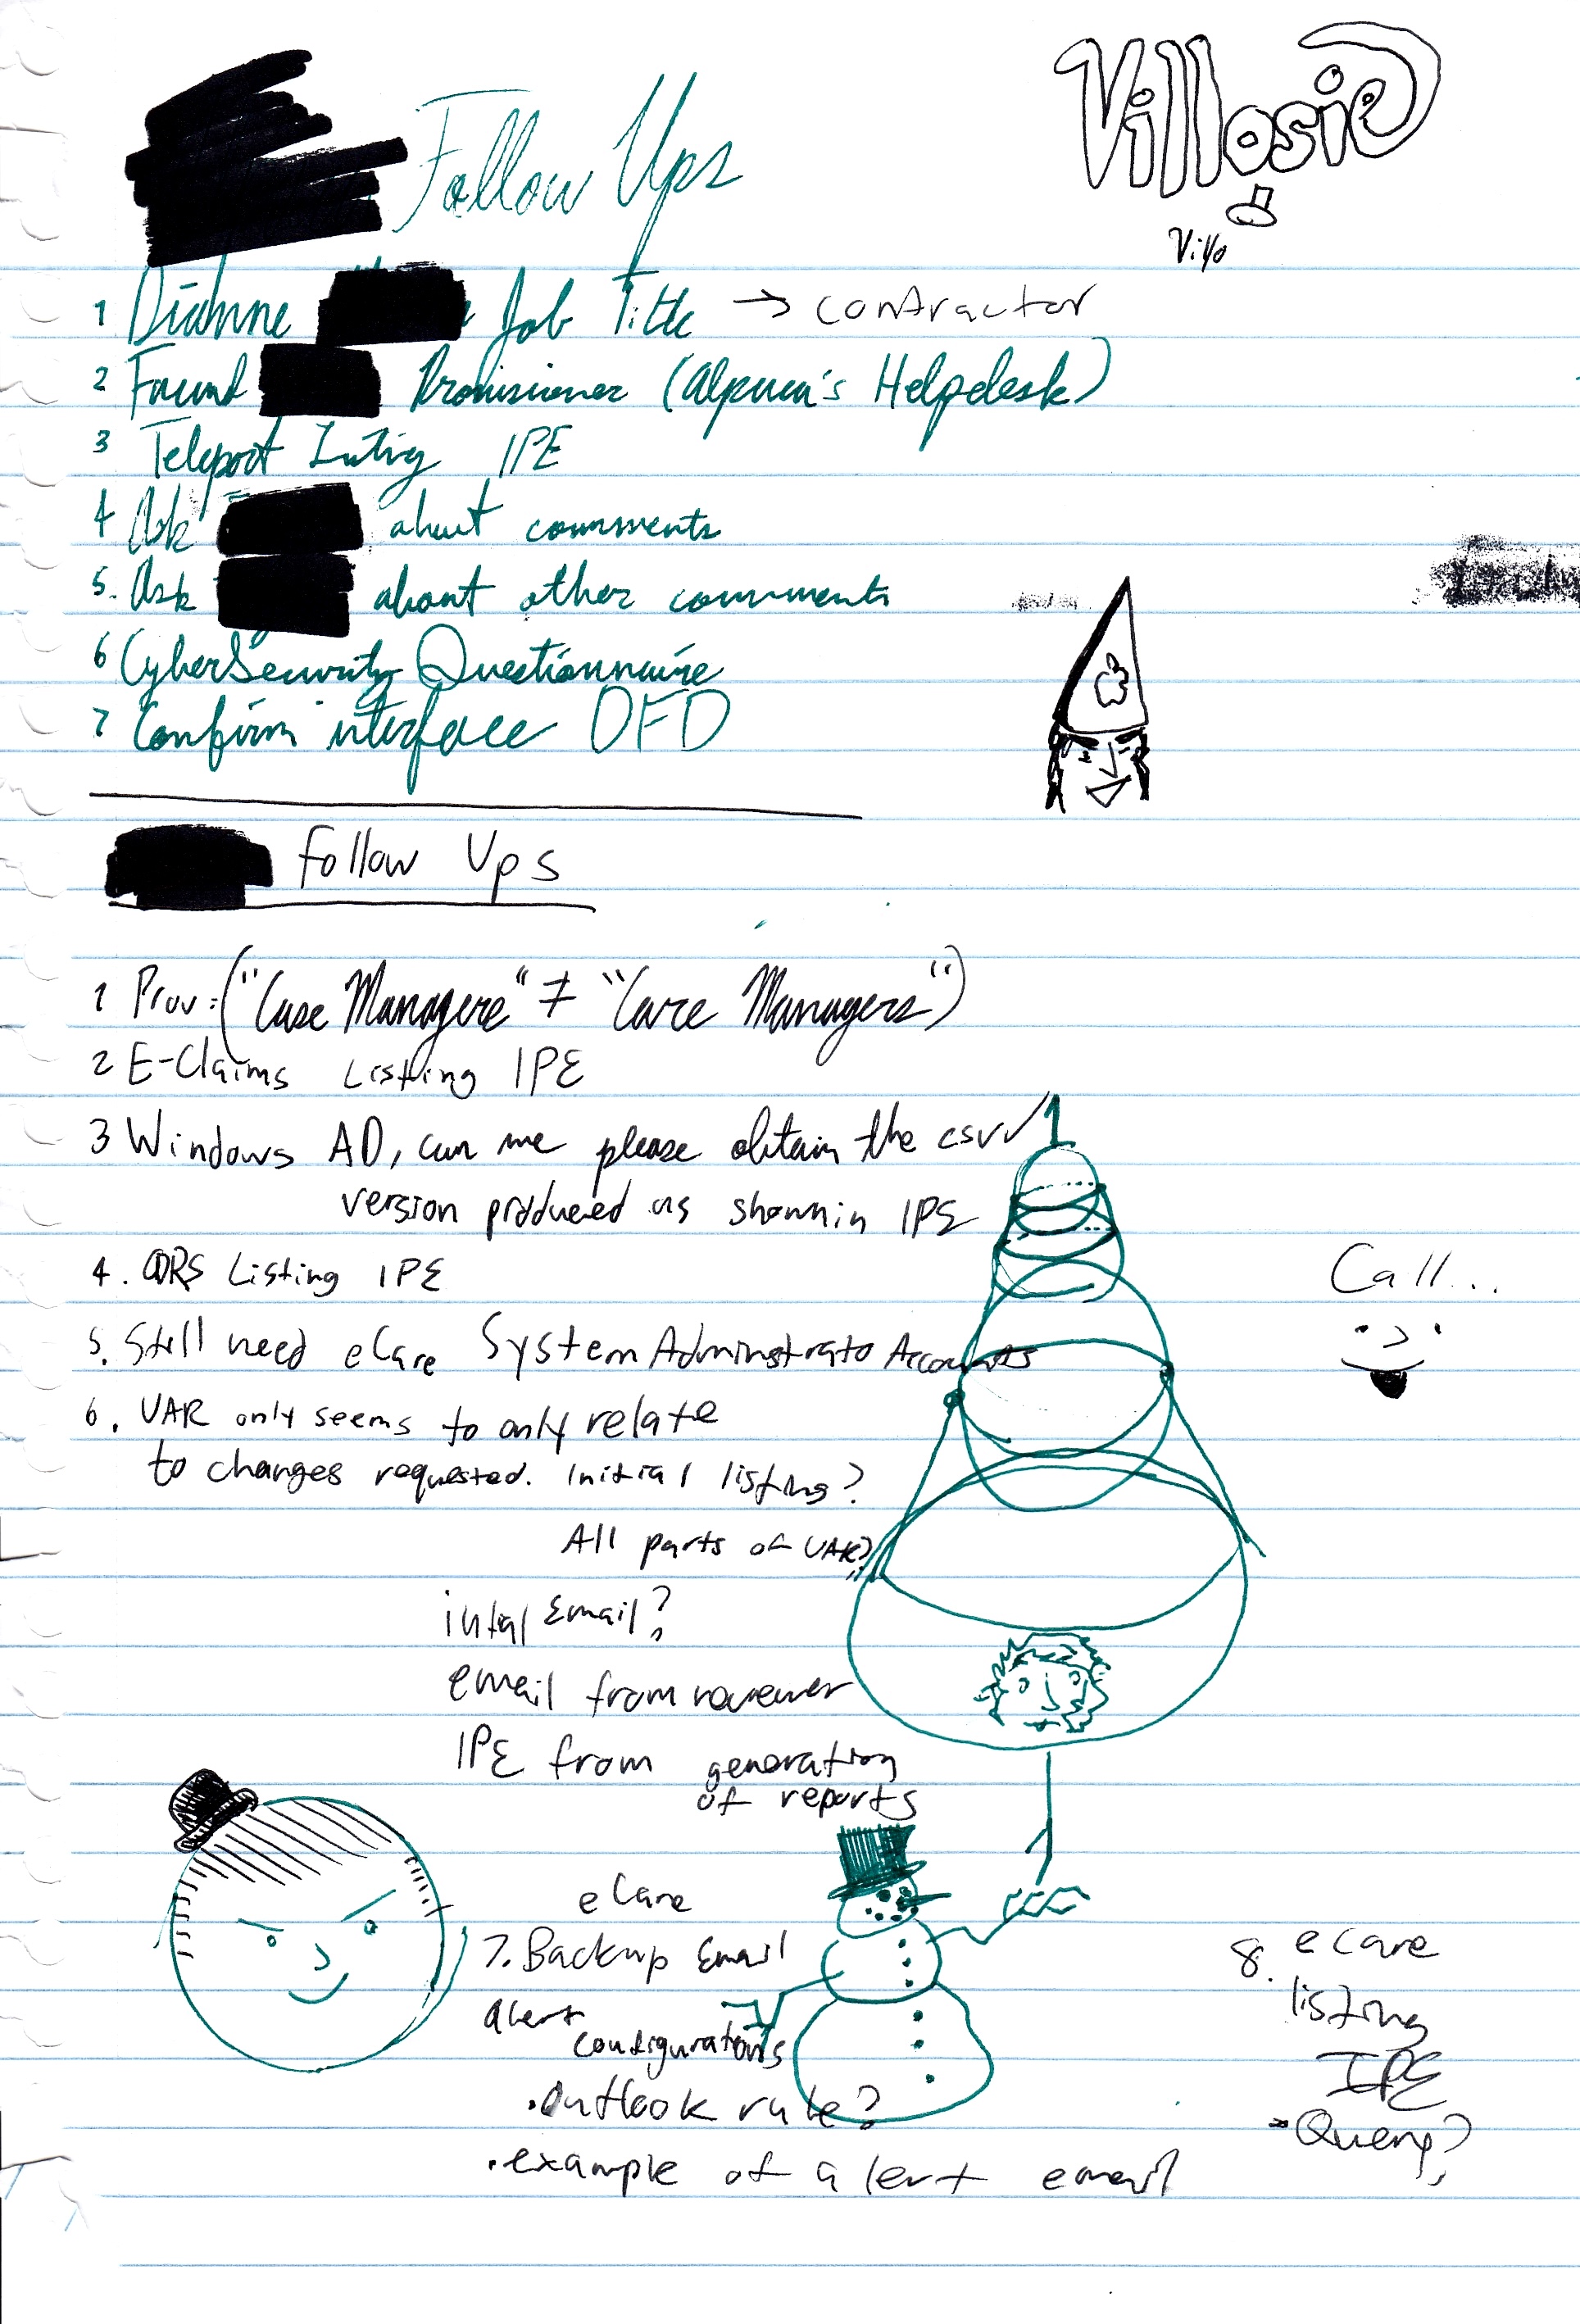 Follow Ups
Villosie
Villo
1 Dianne Job Title → contractor
2 Found Provisioner (Alpun's Helpdesk)
3 Teleport IPE
4 Ask about comments
5. Ask about other comments
6 CyberSecurity Questionnaire
7 Confirm interface OFD
Follow Ups
1 Prov: ("Case Managers" ≠ "Care Managers")
2 E-Claims Listing IPE
3 Windows AD, can we please obtain the csv
version produced as shown in IPE
4. QRS Listing IPE
Call...
5. Still need eCare System Adminstrato Accounts
6. UAR only seems to only relate
to changes requested. Initial listing?
All parts of UAR?
intial Email?
email from reviewer
IPE from generation
of reports
eCare
7. Backup Email
alert
configurations
• Outlook rule?
• example of alert email
8. eCare
listing
IPE
Query?